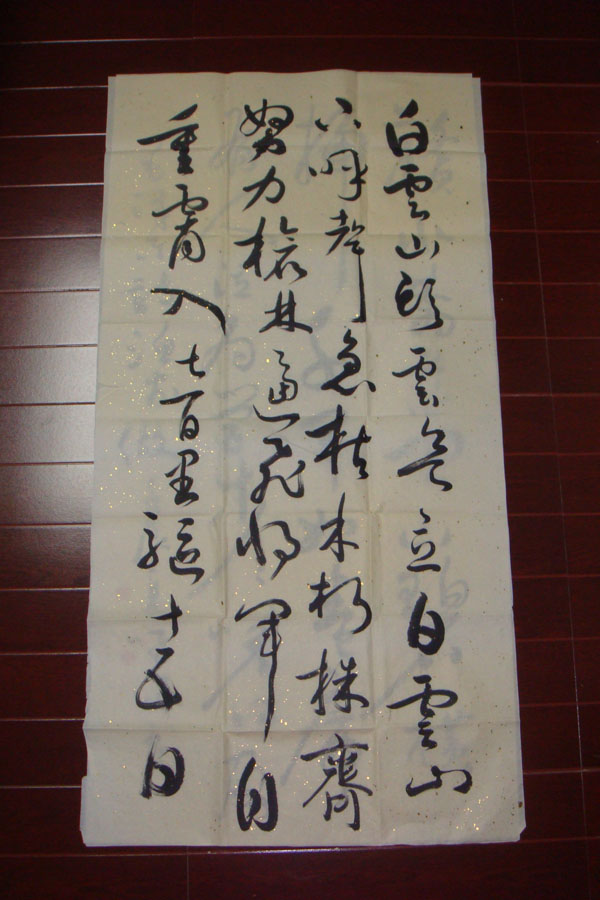 白雲山頭雲欲立白雲山
下呼聲急枯木朽株齊
努力槍林逼飛將軍自
重霄入七百里驅十五日